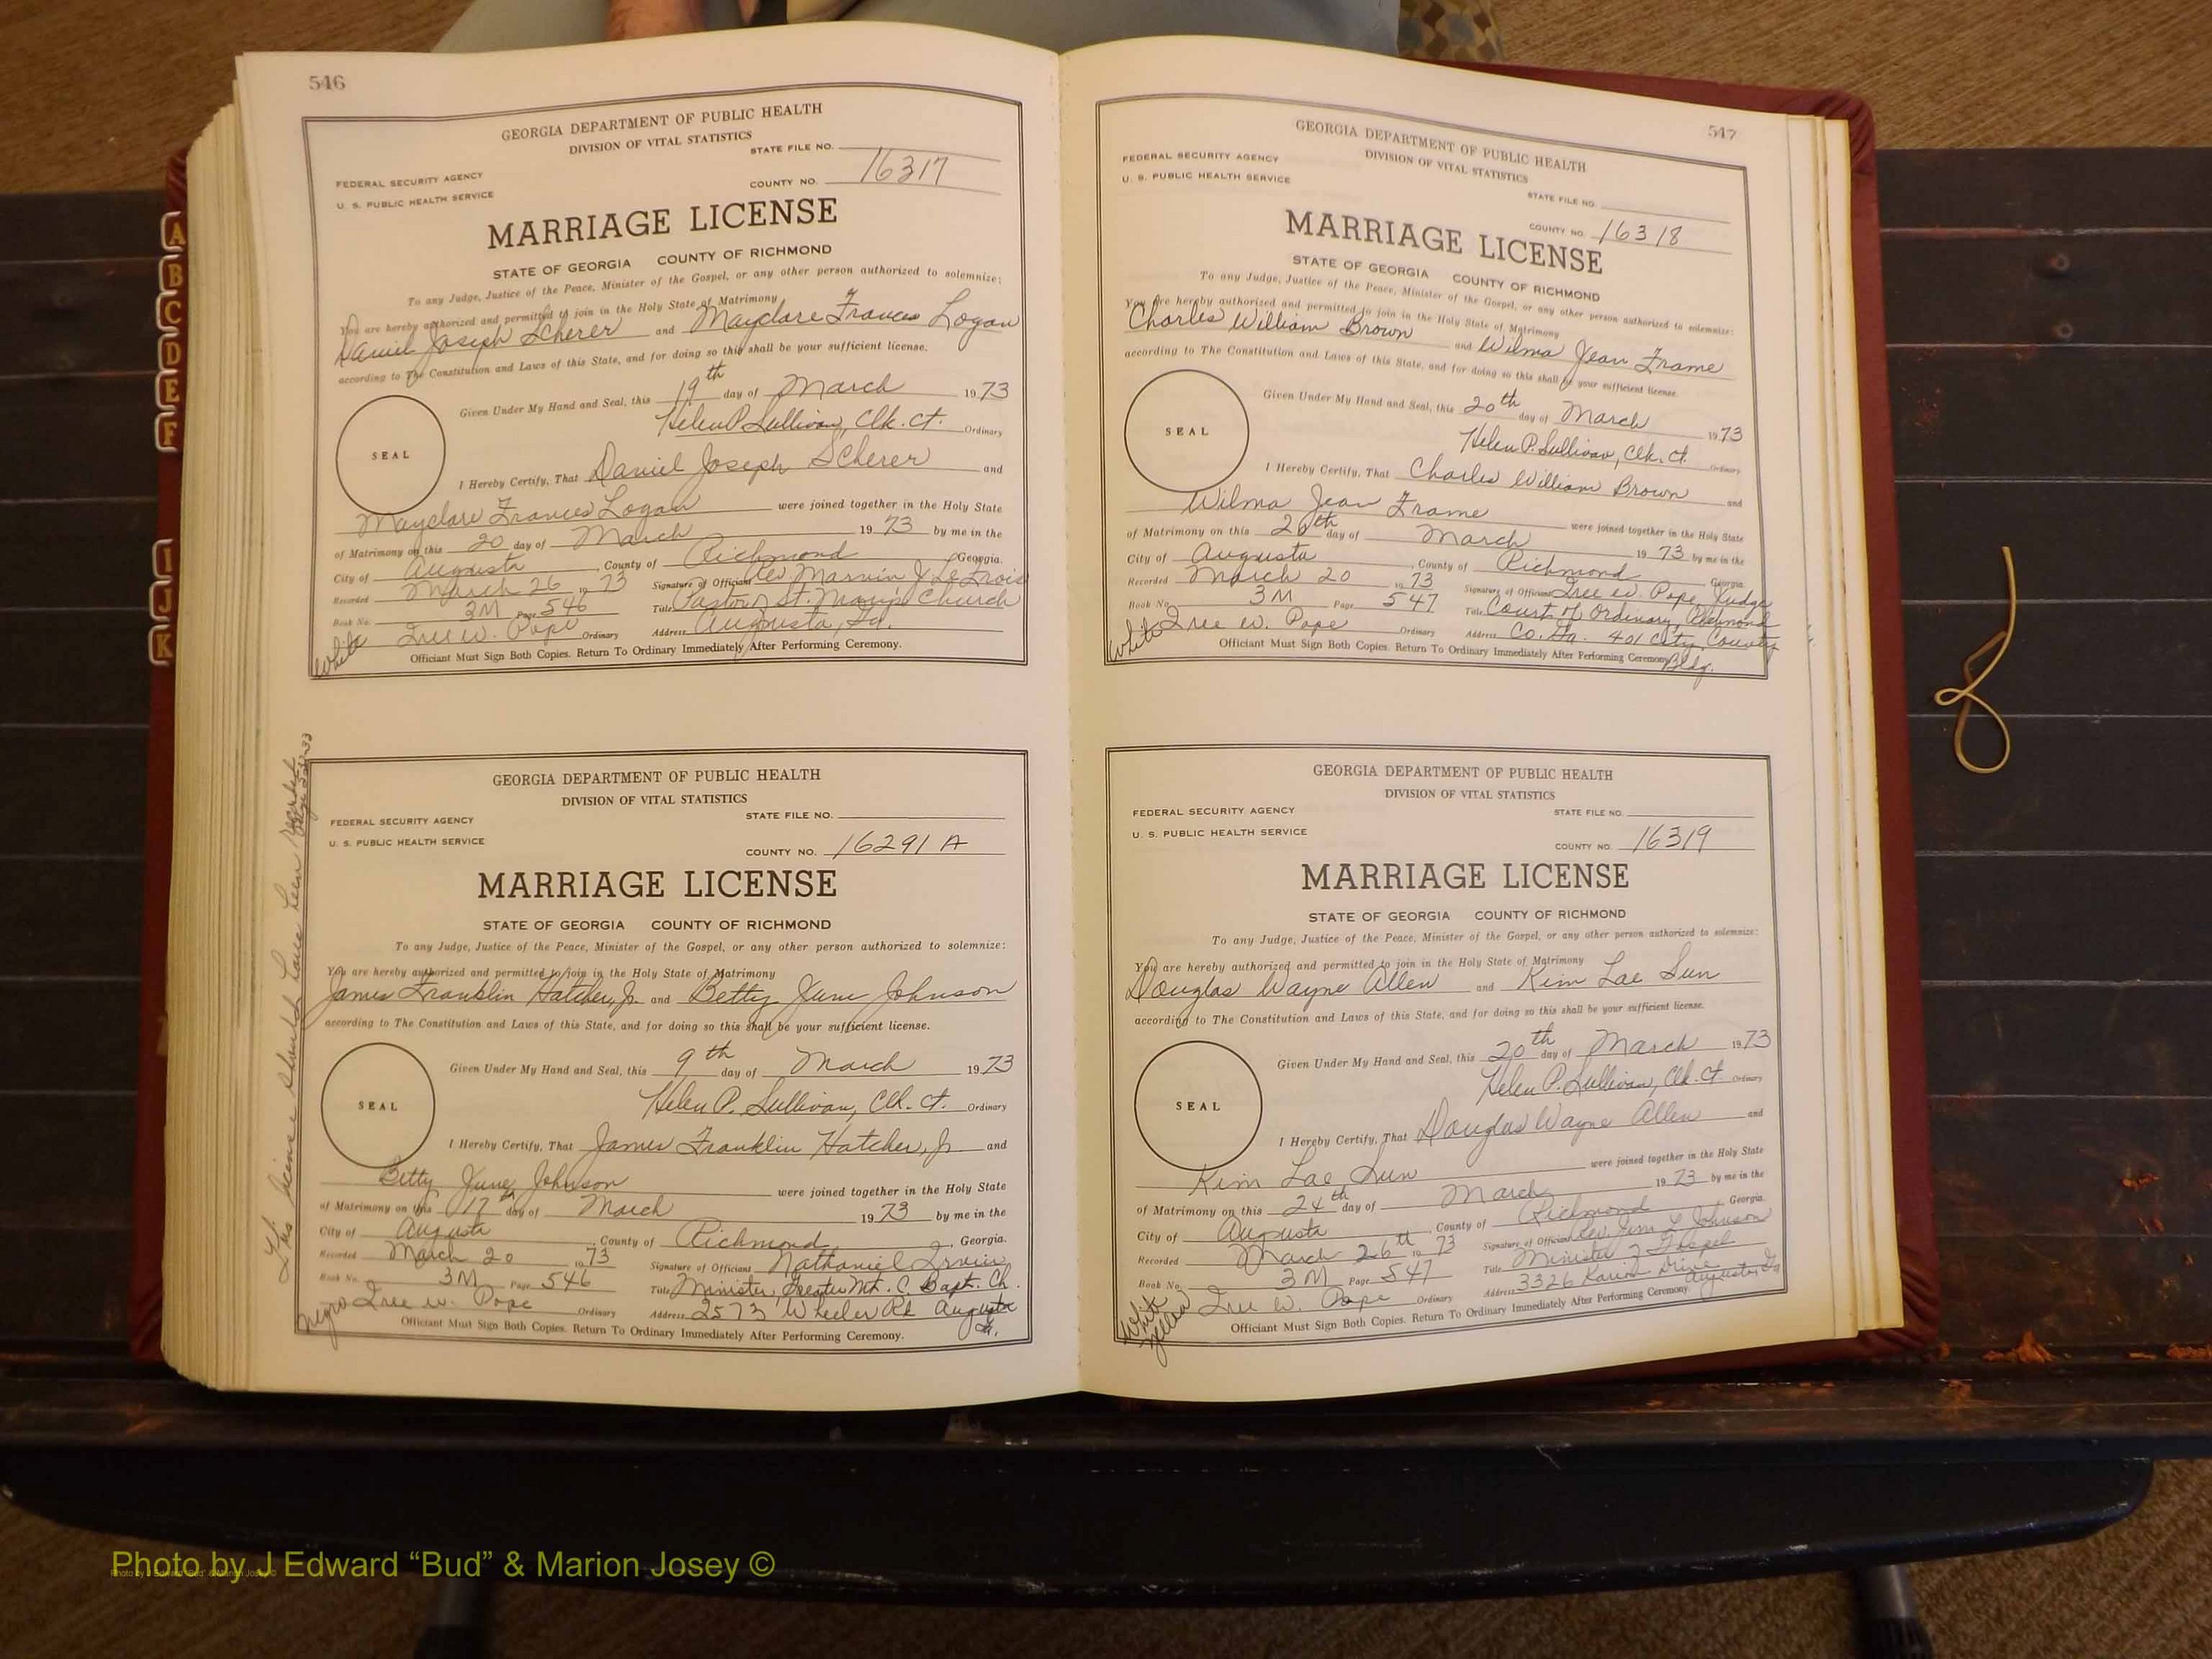 546
GEORGIA DEPARTMENT OF PUBLIC HEALTH
DIVISION OF VITAL STATISTICS
STATE FILE NO.
FEDERAL SECURITY AGENCY
U. S. PUBLIC HEALTH SERVICE
COUNTY NO. 16317
MARRIAGE LICENSE
STATE OF GEORGIA COUNTY OF RICHMOND
To any Judge, Justice of the Peace, Minister of the Gospel, or any other person authorized to solemnize:
You are hereby authorized and permitted to join in the Holy State of Matrimony
Daniel Joseph Scherer and Mayclare Frances Logan
according to The Constitution and Laws of this State, and for doing so this shall be your sufficient license.
Given Under My Hand and Seal, this 19th day of March 1973
Helen P. Sullivan, Clk. Ct. Ordinary
SEAL
I Hereby Certify, That Daniel Joseph Scherer and
Mayclare Frances Logan were joined together in the Holy State
of Matrimony on this 20 day of March 1973 by me in the
City of Augusta, County of Richmond, Georgia.
Recorded March 26 1973 Signature of Officiant Rev Marvin J
Book No. 3M Page 546 Title Pastor, St. Church
Tree W. Pope Ordinary Address Augusta, Ga.
White
Officiant Must Sign Both Copies. Return To Ordinary Immediately After Performing Ceremony.
This license should have been recorded
GEORGIA DEPARTMENT OF PUBLIC HEALTH
DIVISION OF VITAL STATISTICS
STATE FILE NO.
FEDERAL SECURITY AGENCY
U. S. PUBLIC HEALTH SERVICE
COUNTY NO. 16291 A
MARRIAGE LICENSE
STATE OF GEORGIA COUNTY OF RICHMOND
To any Judge, Justice of the Peace, Minister of the Gospel, or any other person authorized to solemnize:
You are hereby authorized and permitted to join in the Holy State of Matrimony
James Franklin Hatcher, Jr. and Betty June Johnson
according to The Constitution and Laws of this State, and for doing so this shall be your sufficient license.
Given Under My Hand and Seal, this 9th day of March 1973
Helen P. Sullivan, Clk. Ct. Ordinary
SEAL
I Hereby Certify, That James Franklin Hatcher, Jr. and
Betty June Johnson were joined together in the Holy State
of Matrimony on this 17th day of March 1973 by me in the
City of Augusta, County of Richmond, Georgia.
Recorded March 20 1973 Signature of Officiant Nathaniel Irvin
Book No. 3M Page 546 Title Minister, Greater Mt. C. Bapt. Ch.
Tree W. Pope Ordinary Address 2573 Wheeler Rd Augusta
Ga.
Negro
Officiant Must Sign Both Copies. Return To Ordinary Immediately After Performing Ceremony.
547
GEORGIA DEPARTMENT OF PUBLIC HEALTH
DIVISION OF VITAL STATISTICS
FEDERAL SECURITY AGENCY
U. S. PUBLIC HEALTH SERVICE
STATE FILE NO.
COUNTY NO. 16318
MARRIAGE LICENSE
STATE OF GEORGIA COUNTY OF RICHMOND
To any Judge, Justice of the Peace, Minister of the Gospel, or any other person authorized to solemnize:
You are hereby authorized and permitted to join in the Holy State of Matrimony
Charles William Brown and Wilma Jean Frame
according to The Constitution and Laws of this State, and for doing so this shall be your sufficient license.
Given Under My Hand and Seal, this 20th day of March 1973
Helen P. Sullivan, Clk. Ct. Ordinary
SEAL
I Hereby Certify, That Charles William Brown and
Wilma Jean Frame were joined together in the Holy State
of Matrimony on this 20th day of March 1973 by me in the
City of Augusta, County of Richmond, Georgia.
Recorded March 20 1973 Signature of Officiant Tree W. Pope, Judge
Book No. 3M Page 547 Title Court of Ordinary, Richmond
Tree W. Pope Ordinary Address Co. Ga. 401 City County
Bldg.
White
Officiant Must Sign Both Copies. Return To Ordinary Immediately After Performing Ceremony.
GEORGIA DEPARTMENT OF PUBLIC HEALTH
DIVISION OF VITAL STATISTICS
FEDERAL SECURITY AGENCY
STATE FILE NO.
U. S. PUBLIC HEALTH SERVICE
COUNTY NO. 16319
MARRIAGE LICENSE
STATE OF GEORGIA COUNTY OF RICHMOND
To any Judge, Justice of the Peace, Minister of the Gospel, or any other person authorized to solemnize:
You are hereby authorized and permitted to join in the Holy State of Matrimony
Douglas Wayne Allen and Kim Lae Sun
according to The Constitution and Laws of this State, and for doing so this shall be your sufficient license.
Given Under My Hand and Seal, this 20th day of March 1973
Helen P. Sullivan, Clk. Ct. Ordinary
SEAL
I Hereby Certify, That Douglas Wayne Allen and
Kim Lae Sun were joined together in the Holy State
of Matrimony on this 24th day of March 1973 by me in the
City of Augusta, County of Richmond, Georgia.
Recorded March 26th 1973 Signature of Officiant Rev. Jim L Johnson
Book No. 3M Page 547 Title Minister of Gospel
Tree W. Pope Ordinary Address 3326 Drive Augusta, Ga
White
Yellow
Officiant Must Sign Both Copies. Return To Ordinary Immediately After Performing Ceremony.
A
B
C
D
E
F
I
J
K
Photo by J Edward “Bud” & Marion Josey ©
Photo by J Edward “Bud” & Marion Josey ©